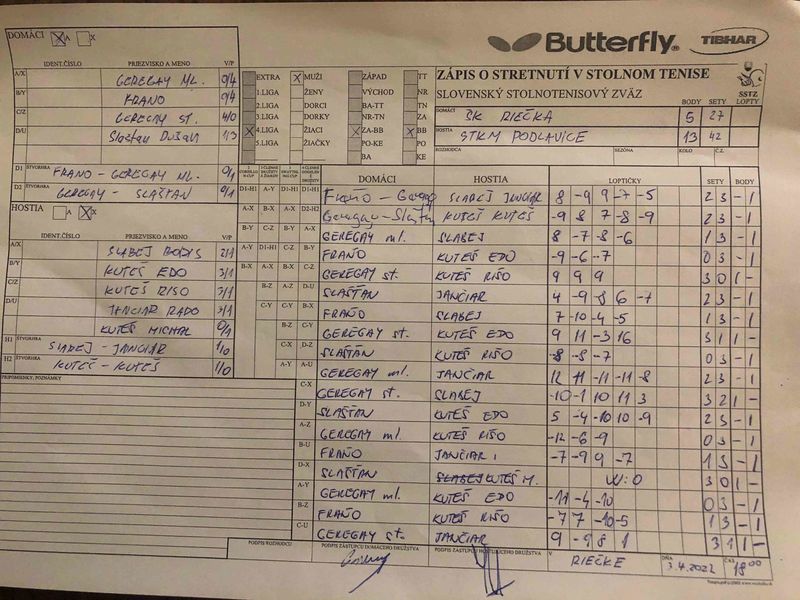 DOMÁCI A X
Butterfly® TIBHAR
IDENT.ČÍSLO PRIEZVISKO A MENO V/P
A/X GEREGAY ML. 0/4
B/Y FRAŇO 0/4
C/Z GEREGAY ST. 4/0
D/U Slašťan Dušan 1/3
D1 ŠTVORHRA FRAŇO - GEREGAY ML. 0/1
D2 GEREGAY - SLAŠŤAN 0/1
EXTRA MUŽI ZÁPAD TT
1.LIGA ŽENY VÝCHOD NR
2.LIGA DORCI BA-TT TN
3.LIGA DORKY NR-TN ZA
4.LIGA ŽIACI ZA-BB BB
5.LIGA ŽIAČKY PO-KE PO
BA KE
ZÁPIS O STRETNUTÍ V STOLNOM TENISE
SLOVENSKÝ STOLNOTENISOVÝ ZVÄZ
SSTZ
BODY SETY LOPTY
DOMÁCI ŠK RIEČKA 5 27
HOSTIA STKM PODLAVICE 13 42
ROZHODCA SEZÓNA KOLO Č.Z.
HOSTIA A X
IDENT.ČÍSLO PRIEZVISKO A MENO V/P
A/X SLABEJ BORIS 2/1
B/Y KUTEŠ EDO 3/1
C/Z KUTEŠ RIŠO 3/1
D/U JANČIAR RADO 3/1
KUTEŠ MICHAL 0/1
H1 ŠTVORHRA SLABEJ - JANČIAR 1/0
H2 ŠTVORHRA KUTEŠ - KUTEŠ 1/0
PRIPOMIENKY, POZNÁMKY
DOMÁCI HOSTIA LOPTIČKY SETY BODY
D1-H1 A-Y D1-H1 D1-H1 Fraňo - Geregay SLABEJ JANČIAR 8 -9 9 -7 -5 2 3 - 1
A-X B-X A-X D2-H2 Geregay - Slašťan KUTEŠ KUTEŠ -9 8 7 -8 -9 2 3 - 1
B-Y C-Z B-Y A-X GEREGAY ml. SLABEJ 8 -7 -8 -6 1 3 - 1
A-Y D1-H1 C-Z B-Y FRAŇO KUTEŠ EDO -9 -6 -7 0 3 - 1
B-X A-X B-X C-Z GEREGAY st. KUTEŠ RIŠO 9 9 9 3 0 1 -
B-Z A-Z D-U SLAŠŤAN JANČIAR 4 -9 -8 6 -7 2 3 - 1
C-Y C-Y B-X FRAŇO SLABEJ 7 -10 -4 -5 1 3 - 1
B-Z C-Y GEREGAY st. KUTEŠ EDO 9 11 -3 16 3 1 1 -
C-X D-Z SLAŠŤAN KUTEŠ RIŠO -8 -8 -7 0 3 - 1
A-Y A-U GEREGAY ml. JANČIAR 12 11 -11 -11 -8 2 3 - 1
C-X GEREGAY st. SLABEJ -10 -1 10 11 3 3 2 1 -
D-Y SLAŠŤAN KUTEŠ EDO 5 -4 -10 10 -9 2 3 - 1
A-Z GEREGAY ml. KUTEŠ RIŠO -12 -6 -9 0 3 - 1
B-U FRAŇO JANČIAR -7 -9 9 -7 1 3 - 1
D-X SLAŠŤAN SLABEJ KUTEŠ M. W:0 3 0 1 -
A-Y GEREGAY ml. KUTEŠ EDO -11 -4 -10 0 3 - 1
B-Z FRAŇO KUTEŠ RIŠO -7 7 -10 -5 1 3 - 1
C-U GEREGAY st. JANČIAR 9 -9 8 1 3 1 1 -
PODPIS ROZHODCU PODPIS ZÁSTUPCU DOMÁCEHO DRUŽSTVA PODPIS ZÁSTUPCU HOSŤUJÚCEHO DRUŽSTVA V RIEČKE DŇA 3.4.2022 ČAS 18 00